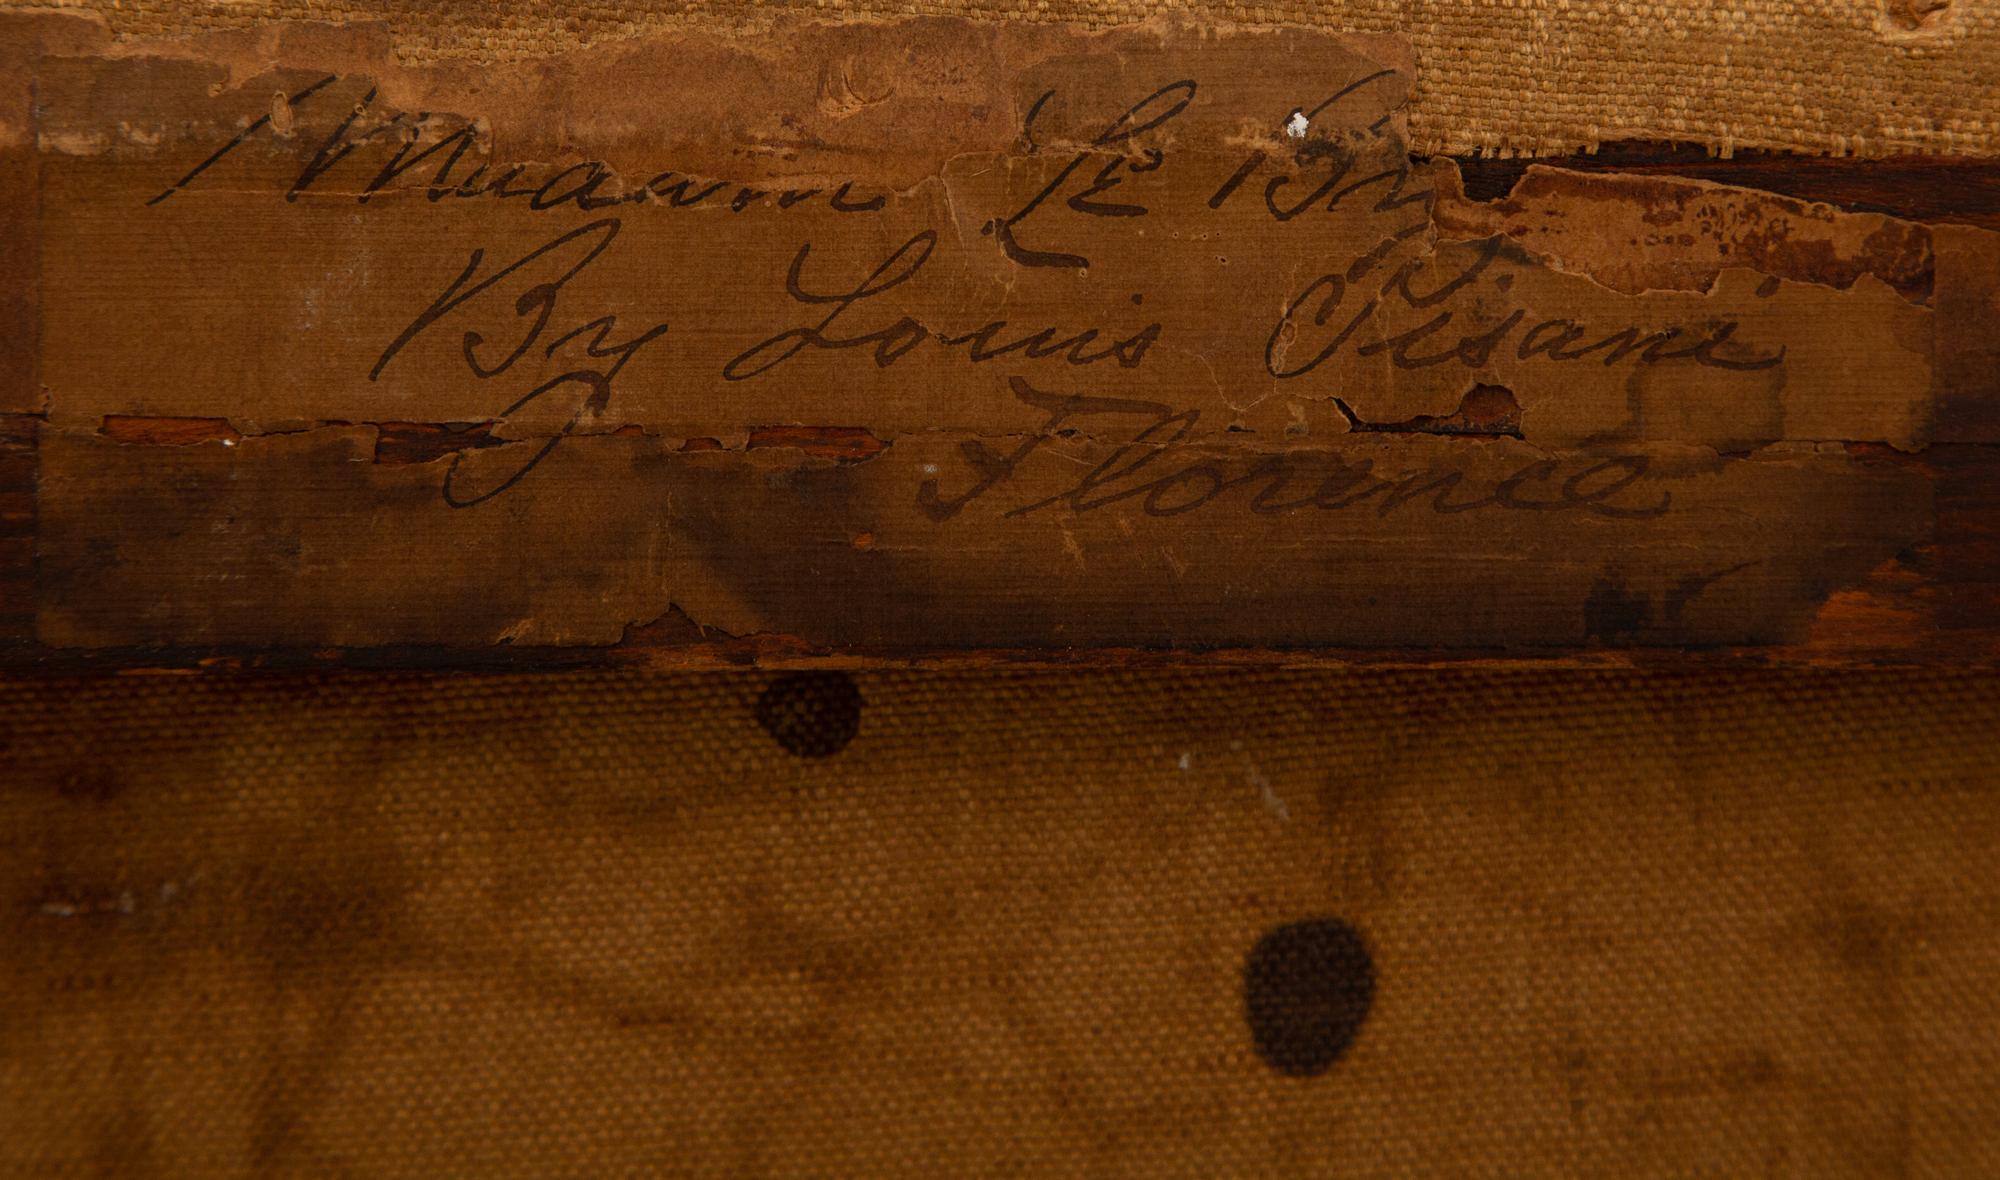 Madam Le Br
By Louis Pisani
Florence